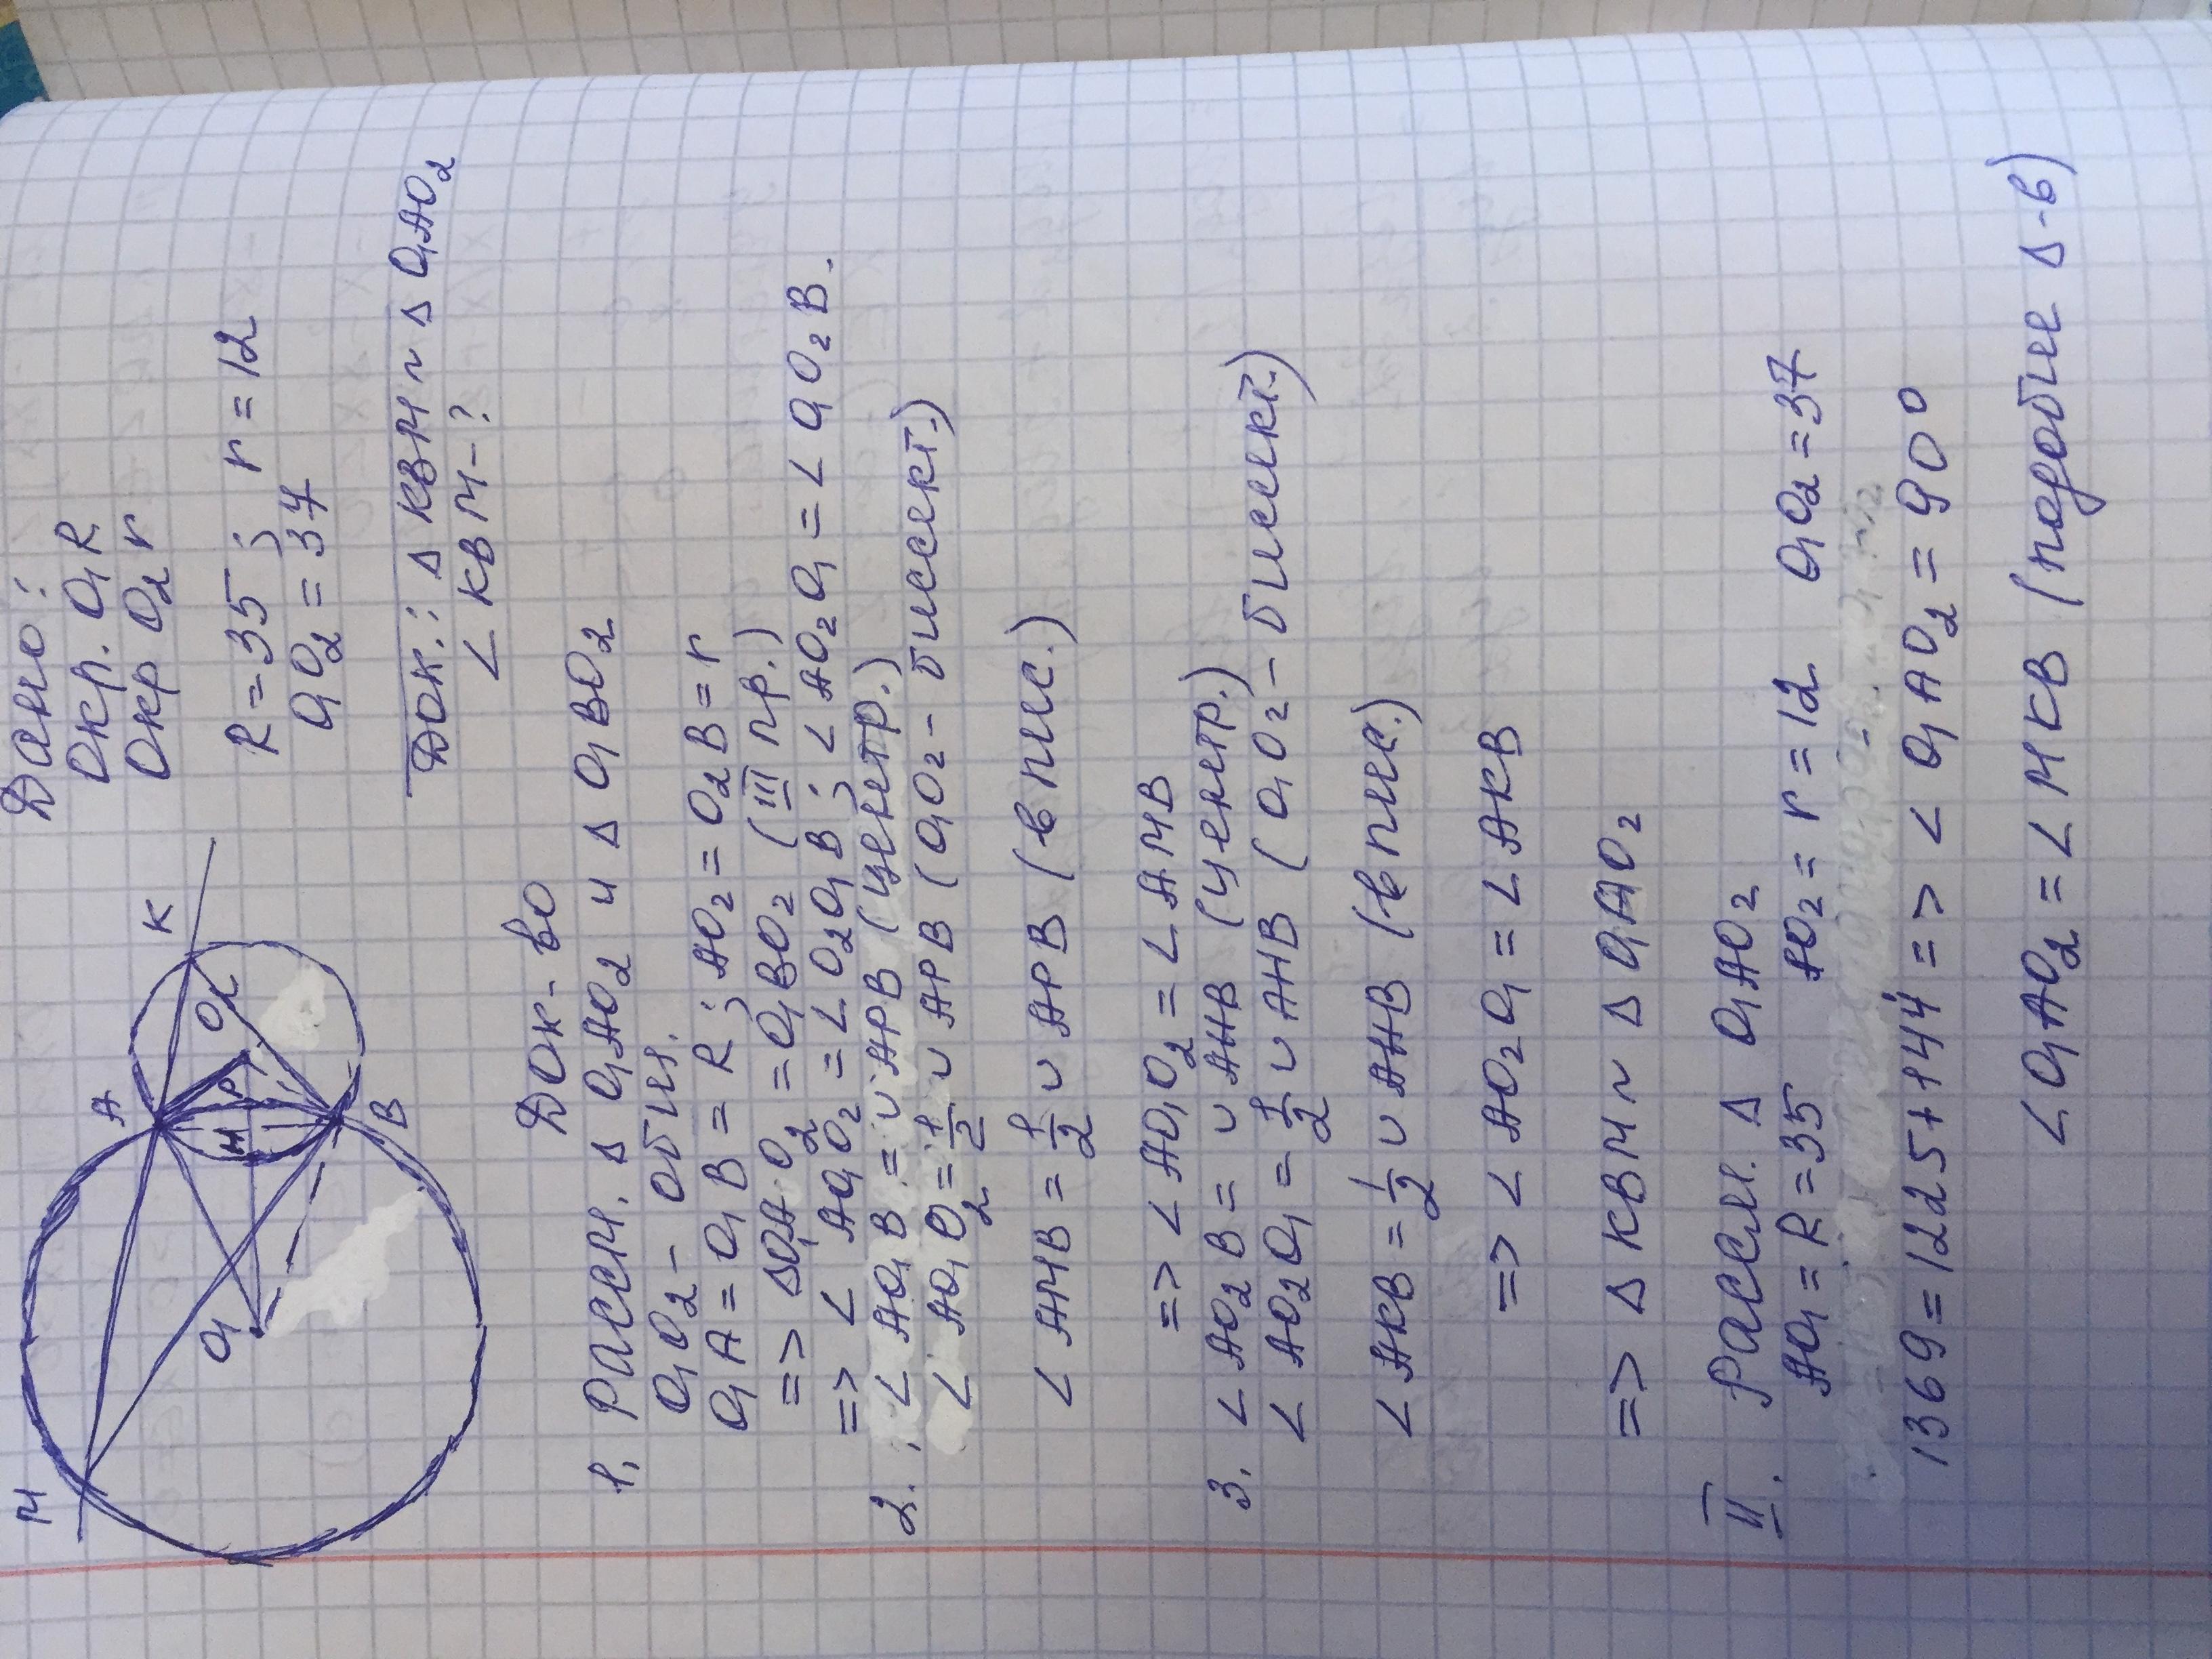 Дано:
Окр. O₁ R
Окр O₂ r
R=35; r=12
O₁O₂=37
Док.: Δ KBM ~ Δ O₁AO₂
∠ KBM-?
M
A
K
O₁
H
P
O₂
B
Док-во
1. Рассм. Δ O₁AO₂ и Δ O₁BO₂
O₁O₂- общ.
O₁A=O₁B=R; AO₂=O₂B=r
=> ΔO₁AO₂=O₁BO₂ (III пр.)
=> ∠ AO₁O₂=∠ O₂O₁B; ∠ AO₂O₁=∠ O₁O₂B.
2. ∠ AO₁B=∪ APB (центр.)
∠ AO₁O₂=½ ∪ APB (O₁O₂-биссект.)
∠ AMB=½ ∪ APB (впис.)
=> ∠ AO₁O₂=∠ AMB
3. ∠ AO₂B=∪ AHB (центр.)
∠ AO₂O₁=½ ∪ AHB (O₁O₂-биссект.)
∠ AKB=½ ∪ AHB (впис.)
=> ∠ AO₂O₁=∠ AKB
=> Δ KBM ~ Δ O₁AO₂
II. Рассм. Δ O₁AO₂
AO₁=R=35 AO₂=r=12 O₁O₂=37
1369=1225+144 => ∠ O₁AO₂=90°
∠ O₁AO₂=∠ MKB (подобие Δ-в)